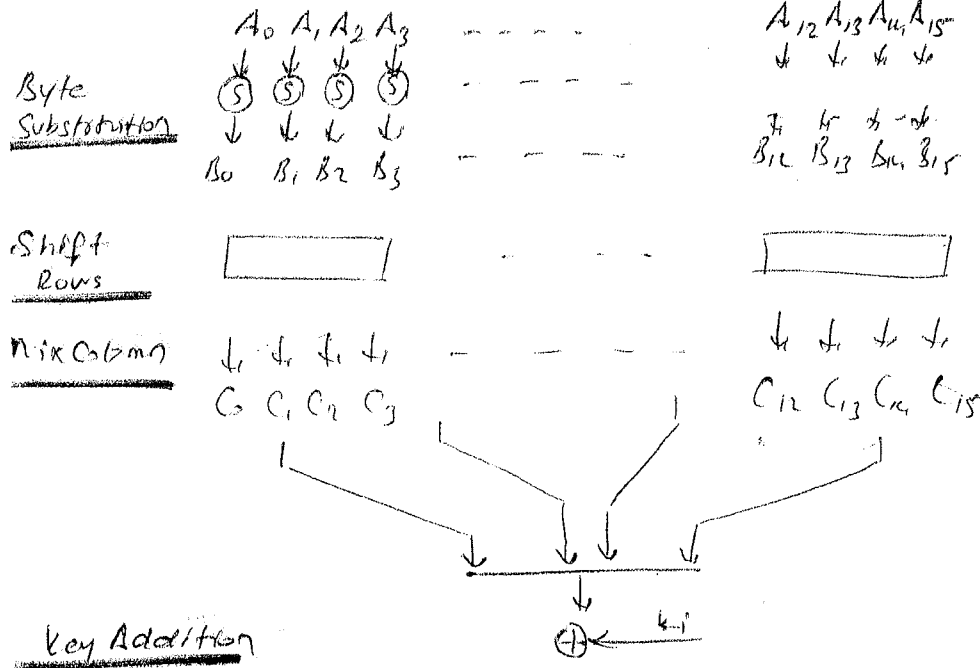 A0 A1 A2 A3 - - - - A12 A13 A14 A15
Byte S S S S - - - -
Substitution
B0 B1 B2 B3 - - - B12 B13 B14 B15
Shift
Rows - - -
Mix Column - - - -
C0 C1 C2 C3 C12 C13 C14 C15
+
Key Addition